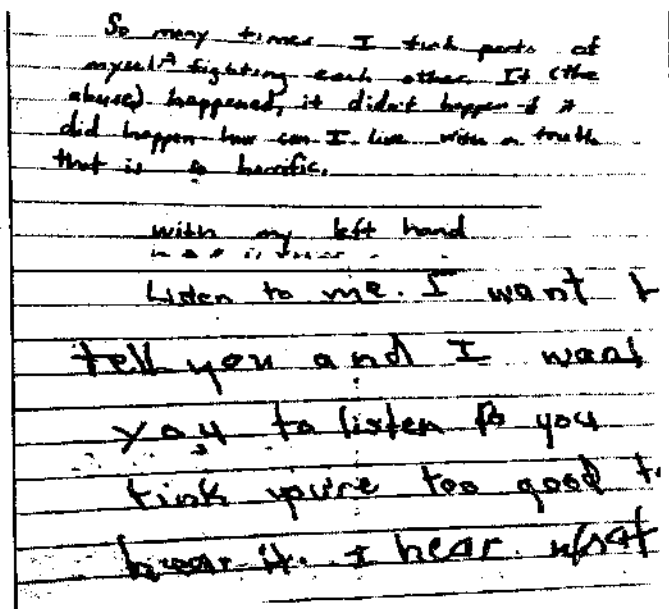 So many times I tink parts of
myself fighting each other. It (the
abuse) happened, it didn't happen if it
did happen how can I live with a truth
that is so horrific.
with my left hand
Listen to me. I want t
tell you and I want
you to listen Do you
tink you're too good t
hear it. I hear what